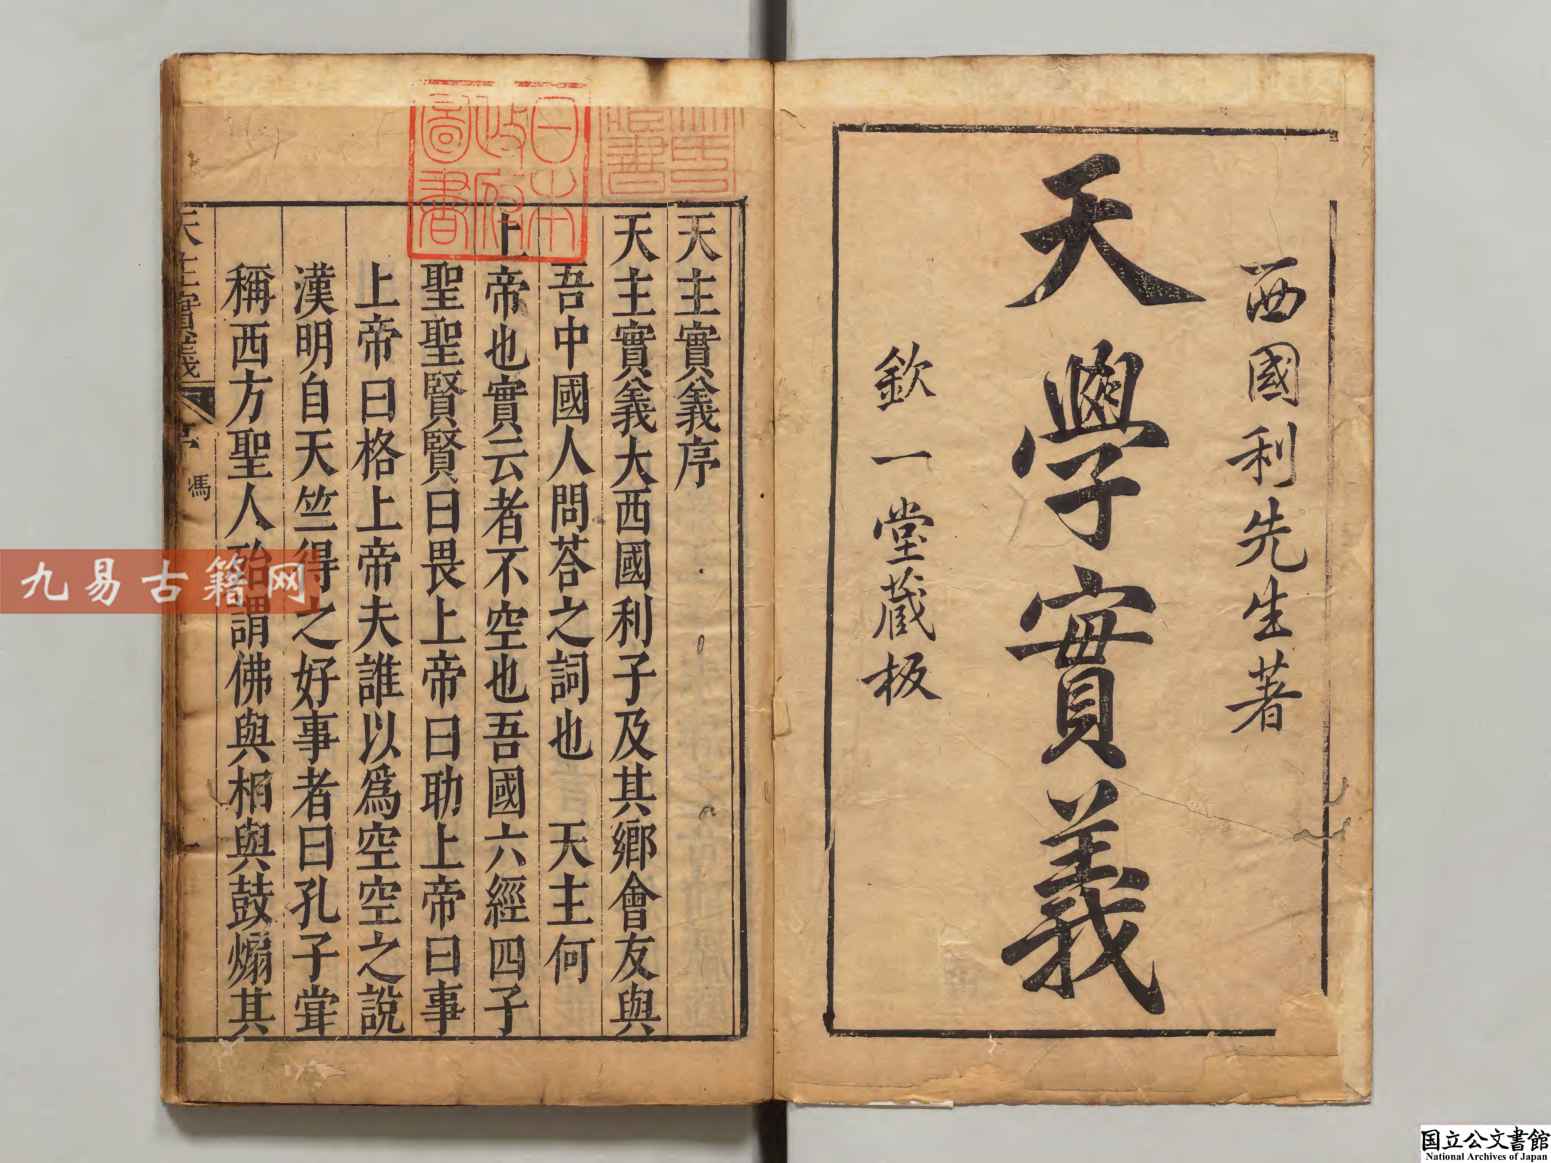 西國利先生著
天學實義
欽一堂藏板
天主實義序
天主實義大西國利子及其鄉會友與
吾中國人問荅之詞也 天主何
上帝也實云者不空也吾國六經四子
聖聖賢賢曰畏上帝曰助上帝曰事
上帝曰格上帝夫誰以爲空空之說
漢明自天竺得之好事者曰孔子甞
稱西方聖人殆謂佛與相與鼓煽其
天主實義
序
馮
日本
政府
圖書
九易古籍网
国立公文書館
National Archives of Japan